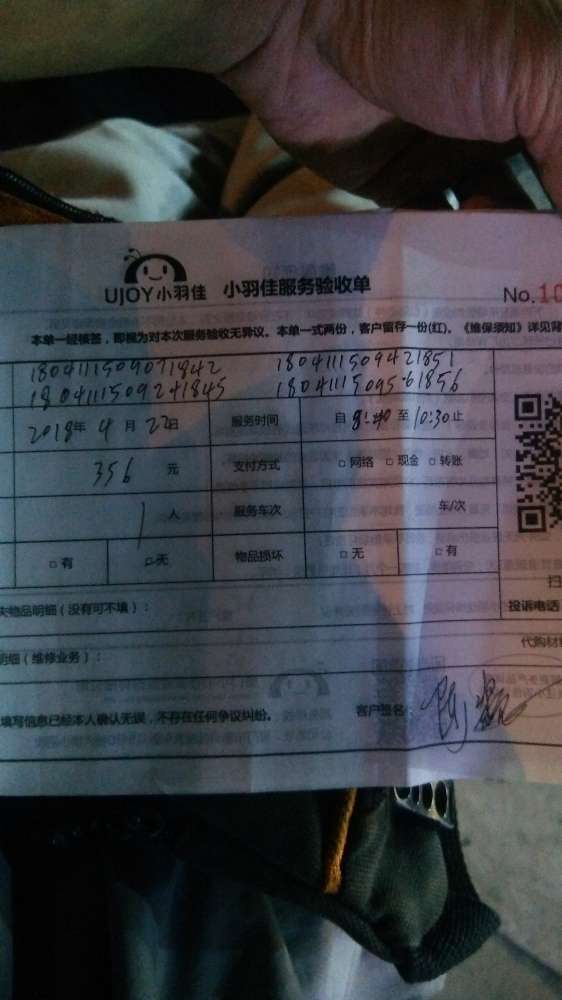 UJOY小羽佳 小羽佳服务验收单
No.10
本单一经核签，即视为对本次服务验收无异议。本单一式两份，客户留存一份(红)。《维保须知》详见背
1804111509071842 1804111509421851
1804111509241845 1804111509561856
2018年 4月 22日 服务时间 自 至 10:30止
356 元 支付方式 □ 网络 □ 现金 □ 转账
1 人 服务车次 车/次
□ 有 □ 无 物品损坏 □ 无 □ 有
失物品明细（没有可不填）： 投诉电话
代购材
明细（维修业务）：
填写信息已经本人确认无误，不存在任何争议纠纷。 客户签名：